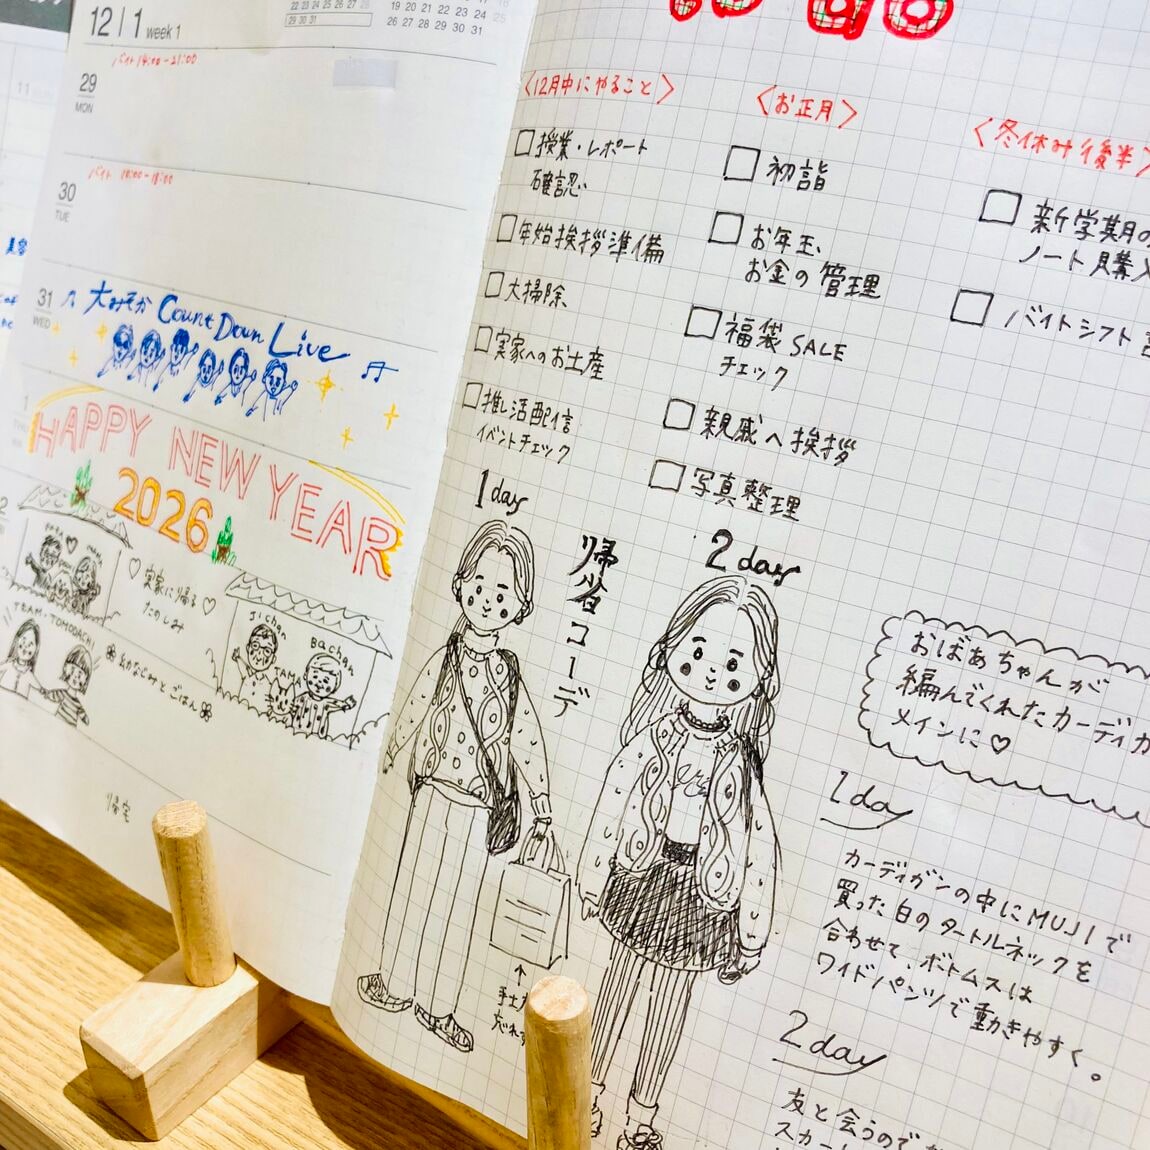 12 | 1 week 1
29
MON
バイト 14:00-21:00
30
TUE
バイト 10:00-18:00
31
WED
大みそか Count Down Live
HAPPY NEW YEAR
2026
実家に帰る
たのしみ
Jichan
Bachan
TAMA
TEAM・TOMODACHI
幼なじみとごはん
帰宅
〈12月中にやること〉
□ 授業・レポート
確認
□ 年始挨拶準備
□ 大掃除
□ 実家へのお土産
□ 推し活配信
イベントチェック
〈お正月〉
□ 初詣
□ お年玉、
お金の管理
□ 福袋 SALE
チェック
□ 親戚へ挨拶
□ 写真整理
〈冬休み後半〉
□ 新学期の
ノート購入
□ バイトシフト
1day
帰省コーデ
2day
おばあちゃんが
編んでくれたカーディガ
メインに♡
1day
カーディガンの中にMUJIで
買った白のタートルネックを
合わせて、ボトムスは
ワイドパンツで動きやすく。
2day
友と会うので
スカー